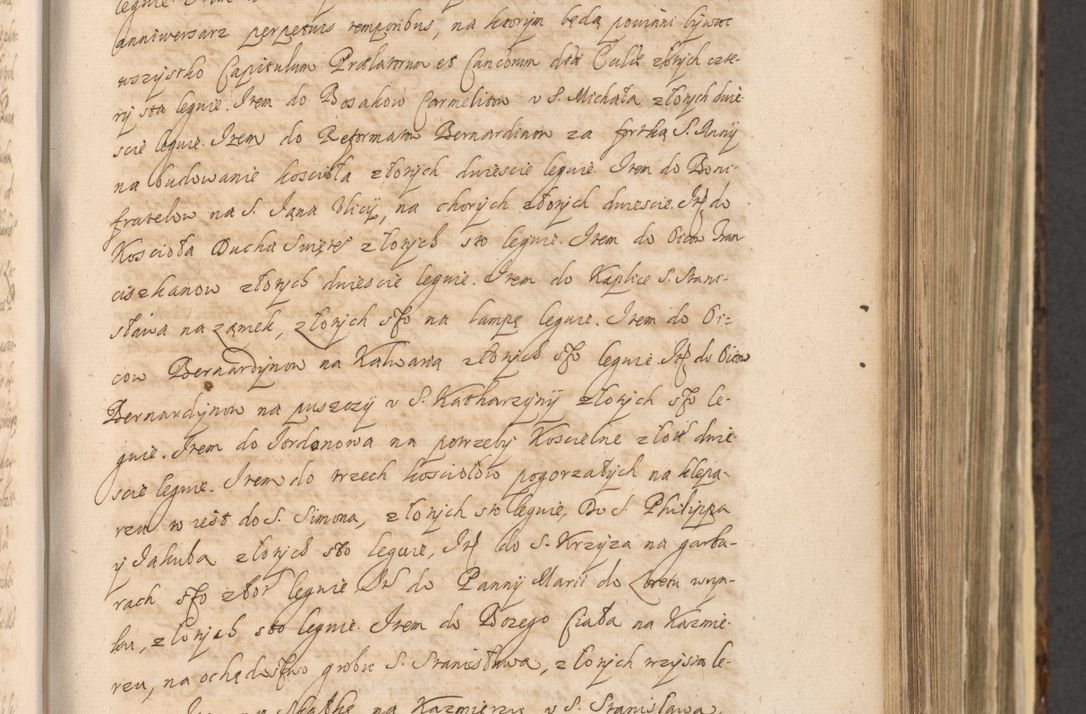 anniwersarz perpetuis temporibus, na ktorÿm będą powinni bÿwac
wszÿstko Capitulum Prælatorum et Canonicorum złotÿch czte-
rÿ sta legnie. Item do Bosakow Carmelitow v S. Michała złotÿch dwie
scie legnie. Item do Reformatow Bernardinow za fortką S. Annÿ
na budowanie koscioła złotÿch dwiescie legnie. Item do Boni-
fratelow na S. Jana Vlicÿ, na chorÿch złotÿch dwiescie. Itē do
Koscioła Ducha Swięte° złotÿch sto legnie. Item do Oicow Fran
ciszkanow złotÿch dwiescie legnie. Item do Kaplice S. Stani-
sława na zamek, złotÿch sto na lampę legnie. Item do Oi-
cow Bernardÿnow na Kalwarią złotÿch sto legnie. Itē do Oicow
Bernardÿnow na puszczÿ v S. Katharzÿnÿ złotÿch sto le-
gnie. Item do Jordanowa na potrzebÿ Koscielne złotÿch dwie-
scie legnie. Item do trzech kosciołow pogorzałÿch na klepa-
rzu to iest do S. Simona, złotÿch sto legnie, Do S Philippa
ÿ Jakuba złotÿch sto legnie, Itē do S. Krzÿza na garba-
rach sto złot legnie Itē do Pannÿ Marii do Loretu
złotÿch sto legnie. Item do Bozego Ciała na Kazmie-
rzu, na ochędostwo grobu S. Stanisława, złotÿch trzÿsta le-
na Skałkę na Kazmierzu v S. Stanisława,